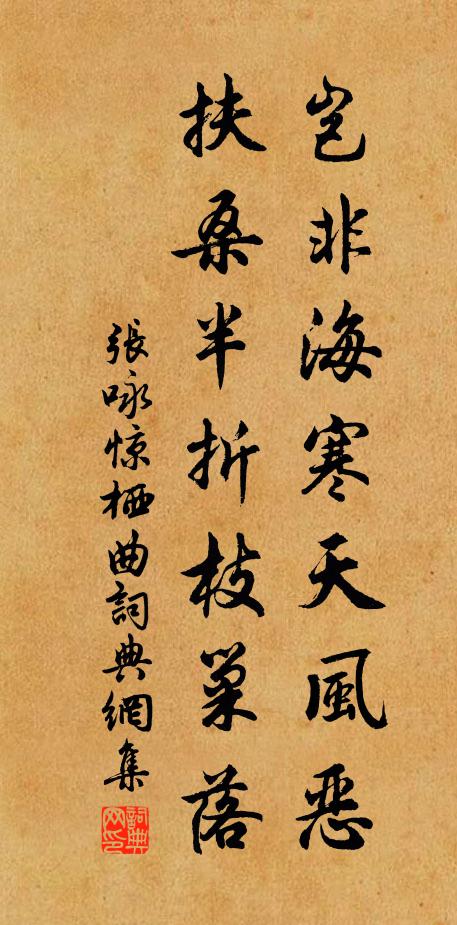 岂非海寒天風恶
扶桑半折枝巢落
張咏惊栖曲詞典網集
詞典网印